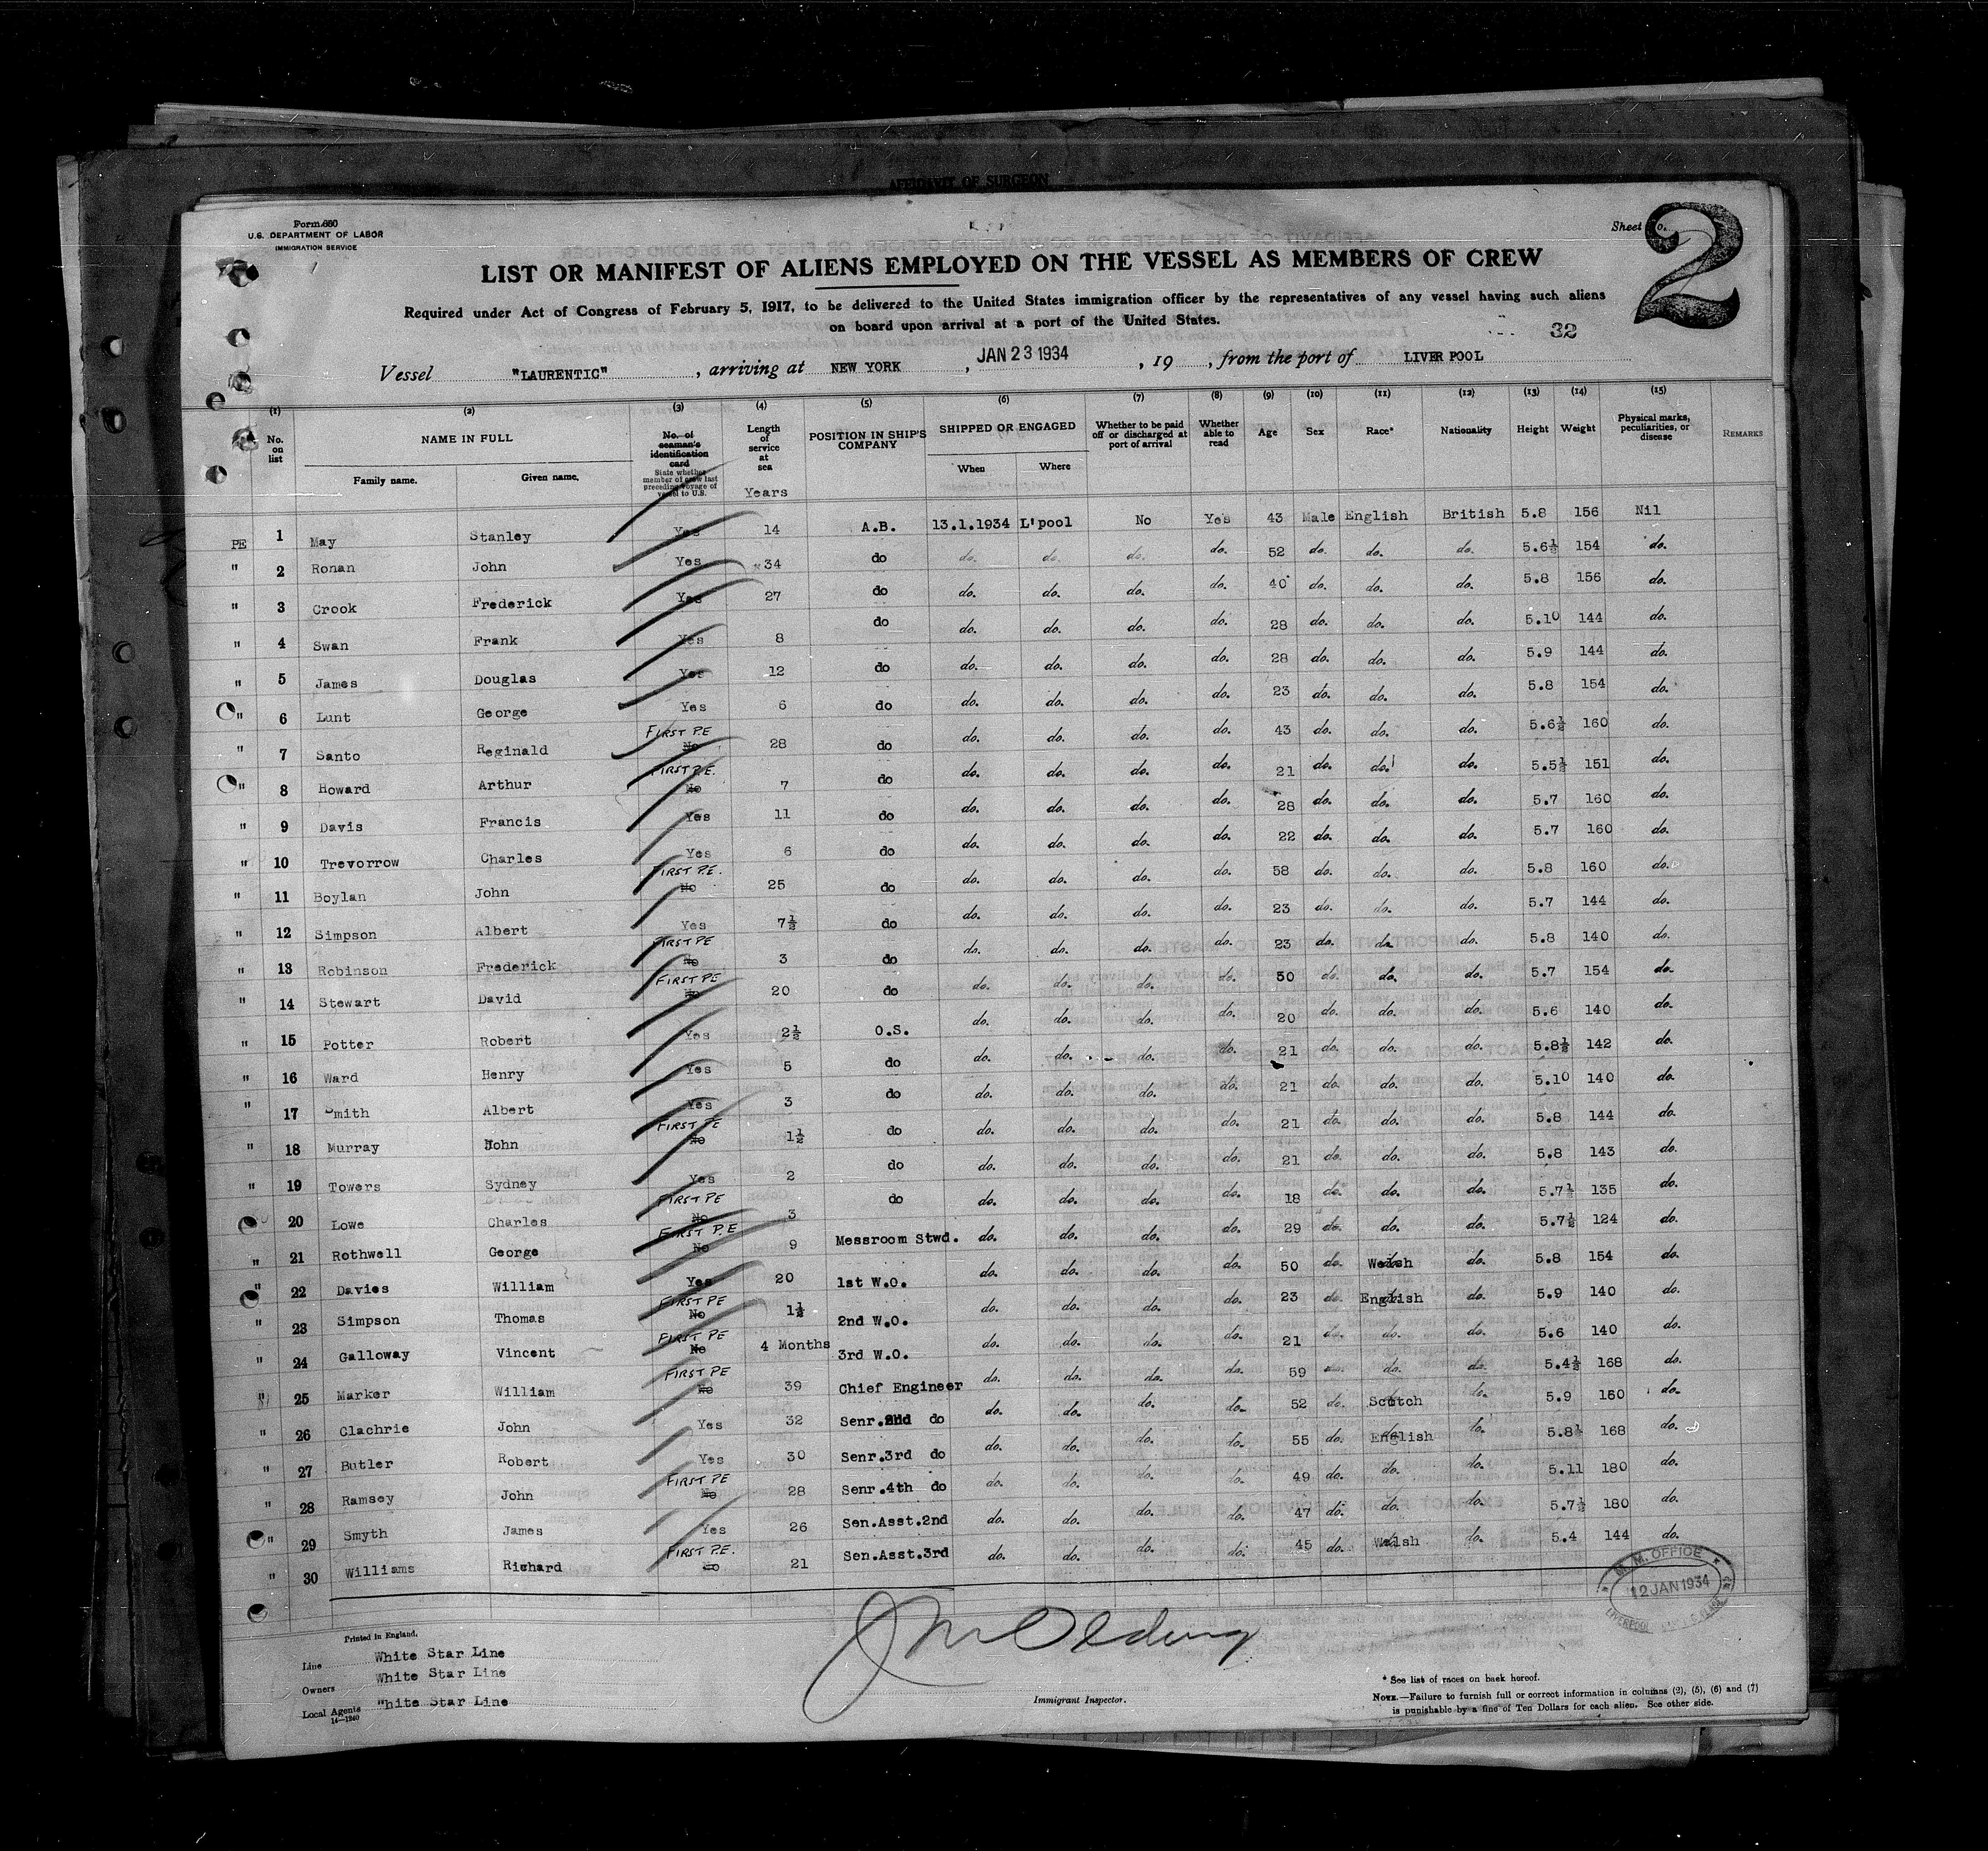 AFFIDAVIT OF SURGEON
Form 680
U.S. DEPARTMENT OF LABOR
IMMIGRATION SERVICE
Sheet No. 2
LIST OR MANIFEST OF ALIENS EMPLOYED ON THE VESSEL AS MEMBERS OF CREW
Required under Act of Congress of February 5, 1917, to be delivered to the United States immigration officer by the representatives of any vessel having such aliens
on board upon arrival at a port of the United States.
32
Vessel "LAURENTIC", arriving at NEW YORK, JAN 23 1934, 19 , from the port of LIVERPOOL
(1) (2) (3) (4) (5) (6) (7) (8) (9) (10) (11) (12) (13) (14) (15)
No. on list NAME IN FULL Family name. Given name. No. of seaman's identification card State whether member of crew last preceding voyage of vessel to U.S. Length of service at sea Years POSITION IN SHIP'S COMPANY SHIPPED OR ENGAGED When Where Whether to be paid off or discharged at port of arrival Whether able to read Age Sex Race* Nationality Height Weight Physical marks, peculiarities, or disease REMARKS
PE 1 May Stanley Yes 14 A.B. 13.1.1934 L'pool No Yes 43 Male English British 5.8 156 Nil
" 2 Ronan John Yes 34 do do. do. do. do. 52 do. do. do. 5.6½ 154 do.
" 3 Crook Frederick Yes 27 do do. do. do. do. 40 do. do. do. 5.8 156 do.
" 4 Swan Frank Yes 8 do do. do. do. do. 28 do. do. do. 5.10 144 do.
" 5 James Douglas Yes 12 do do. do. do. do. 28 do. do. do. 5.9 144 do.
" 6 Lunt George Yes 6 do do. do. do. do. 23 do. do. do. 5.8 154 do.
" 7 Santo Reginald No FIRST P.E 28 do do. do. do. do. 43 do. do. do. 5.6½ 160 do.
" 8 Howard Arthur No FIRST P.E. 7 do do. do. do. do. 21 do. do. do. 5.5½ 151 do.
" 9 Davis Francis Yes 11 do do. do. do. do. 28 do. do. do. 5.7 160 do.
" 10 Trevorrow Charles Yes 6 do do. do. do. do. 22 do. do. do. 5.7 160 do.
" 11 Boylan John No FIRST P.E. 25 do do. do. do. do. 58 do. do. do. 5.8 160 do.
" 12 Simpson Albert Yes 7½ do do. do. do. do. 23 do. do. do. 5.7 144 do.
" 13 Robinson Frederick No FIRST PE 3 do do. do. do. do. 23 do. do. do. 5.8 140 do.
" 14 Stewart David No FIRST PE 20 do do. do. do. do. 50 do. do. do. 5.7 154 do.
" 15 Potter Robert Yes 2½ O.S. do. do. do. do. 20 do. do. do. 5.6 140 do.
" 16 Ward Henry Yes 5 do do. do. do. do. 21 do. do. do. 5.8½ 142 do.
" 17 Smith Albert Yes 3 do do. do. do. do. 21 do. do. do. 5.10 140 do.
" 18 Murray John No FIRST PE 1½ do do. do. do. do. 21 do. do. do. 5.8 144 do.
" 19 Towers Sydney Yes 2 do do. do. do. do. 21 do. do. do. 5.8 143 do.
20 Lowe Charles No FIRST PE 3 do do. do. do. do. 18 do. do. do. 5.7½ 135 do.
" 21 Rothwell George No FIRST P.E 9 Messroom Stwd. do. do. do. do. 29 do. do. do. 5.7½ 124 do.
" 22 Davies William Yes 20 1st W.O. do. do. do. do. 50 do. Welsh do. 5.8 154 do.
" 23 Simpson Thomas No FIRST PE 1½ 2nd W.O. do. do. do. do. 23 do. English do. 5.9 140 do.
" 24 Galloway Vincent No FIRST PE 4 Months 3rd W.O. do. do. do. do. 21 do. do. do. 5.6 140 do.
" 25 Marker William No FIRST PE 39 Chief Engineer do. do. do. do. 59 do. do. do. 5.4½ 168 do.
" 26 Clachrie John Yes 32 Senr.2nd do do. do. do. do. 52 do. Scotch do. 5.9 160 do.
" 27 Butler Robert Yes 30 Senr.3rd do do. do. do. do. 55 do. English do. 5.8½ 168 do.
" 28 Ramsey John No FIRST PE 28 Senr.4th do do. do. do. do. 49 do. do. do. 5.11 180 do.
" 29 Smyth James Yes 26 Sen.Asst.2nd do. do. do. do. 47 do. do. do. 5.7½ 180 do.
" 30 Williams Richard No FIRST P.E. 21 Sen.Asst.3rd do. do. do. do. 45 do. Welsh do. 5.4 144 do.
M.M. OFFICE
12 JAN 1934
LIVERPOOL
Printed in England.
Line White Star Line
Owners White Star Line
Local Agents White Star Line
14—1240
Immigrant Inspector.
* See list of races on back hereof.
NOTE.—Failure to furnish full or correct information in columns (2), (5), (6) and (7)
is punishable by a fine of Ten Dollars for each alien. See other side.